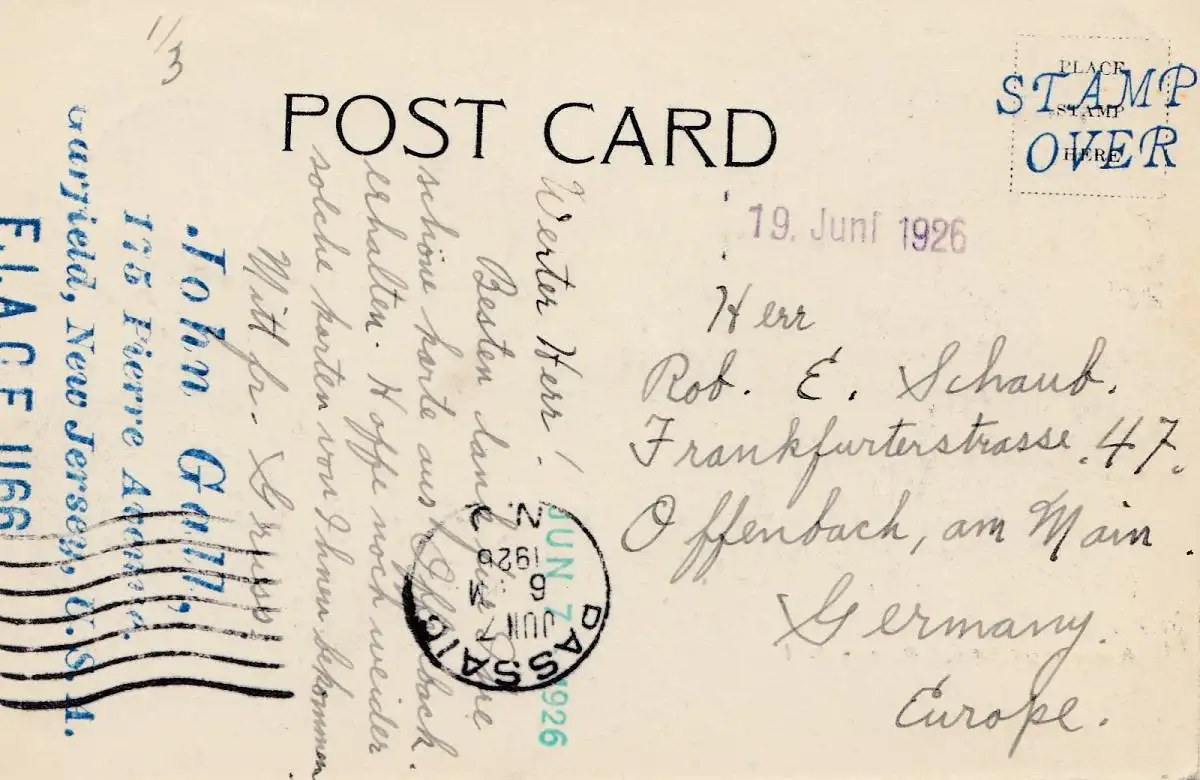 1/3
POST CARD
PLACE
STAMP
HERE
STAMP
OVER
19. Juni 1926
Herr
Rob. E. Schaub.
Frankfurterstrasse. 47.
Offenbach, am Main.
Germany.
Europe.
Werter Herr!
Besten dank für Ihre
schöne karte aus Offenbach.
erhalten. Hoffe noch weider
solche karten von Ihnen bekommen
Mitt fr. Gruss
John Gall,
175 Pierre Avenue.
Garfield, New Jersey, U. S. A.
F.I.A.C.E 1166
JUN 7 1926
PASSAIC
JUN 7
6 M
1926
N.J.